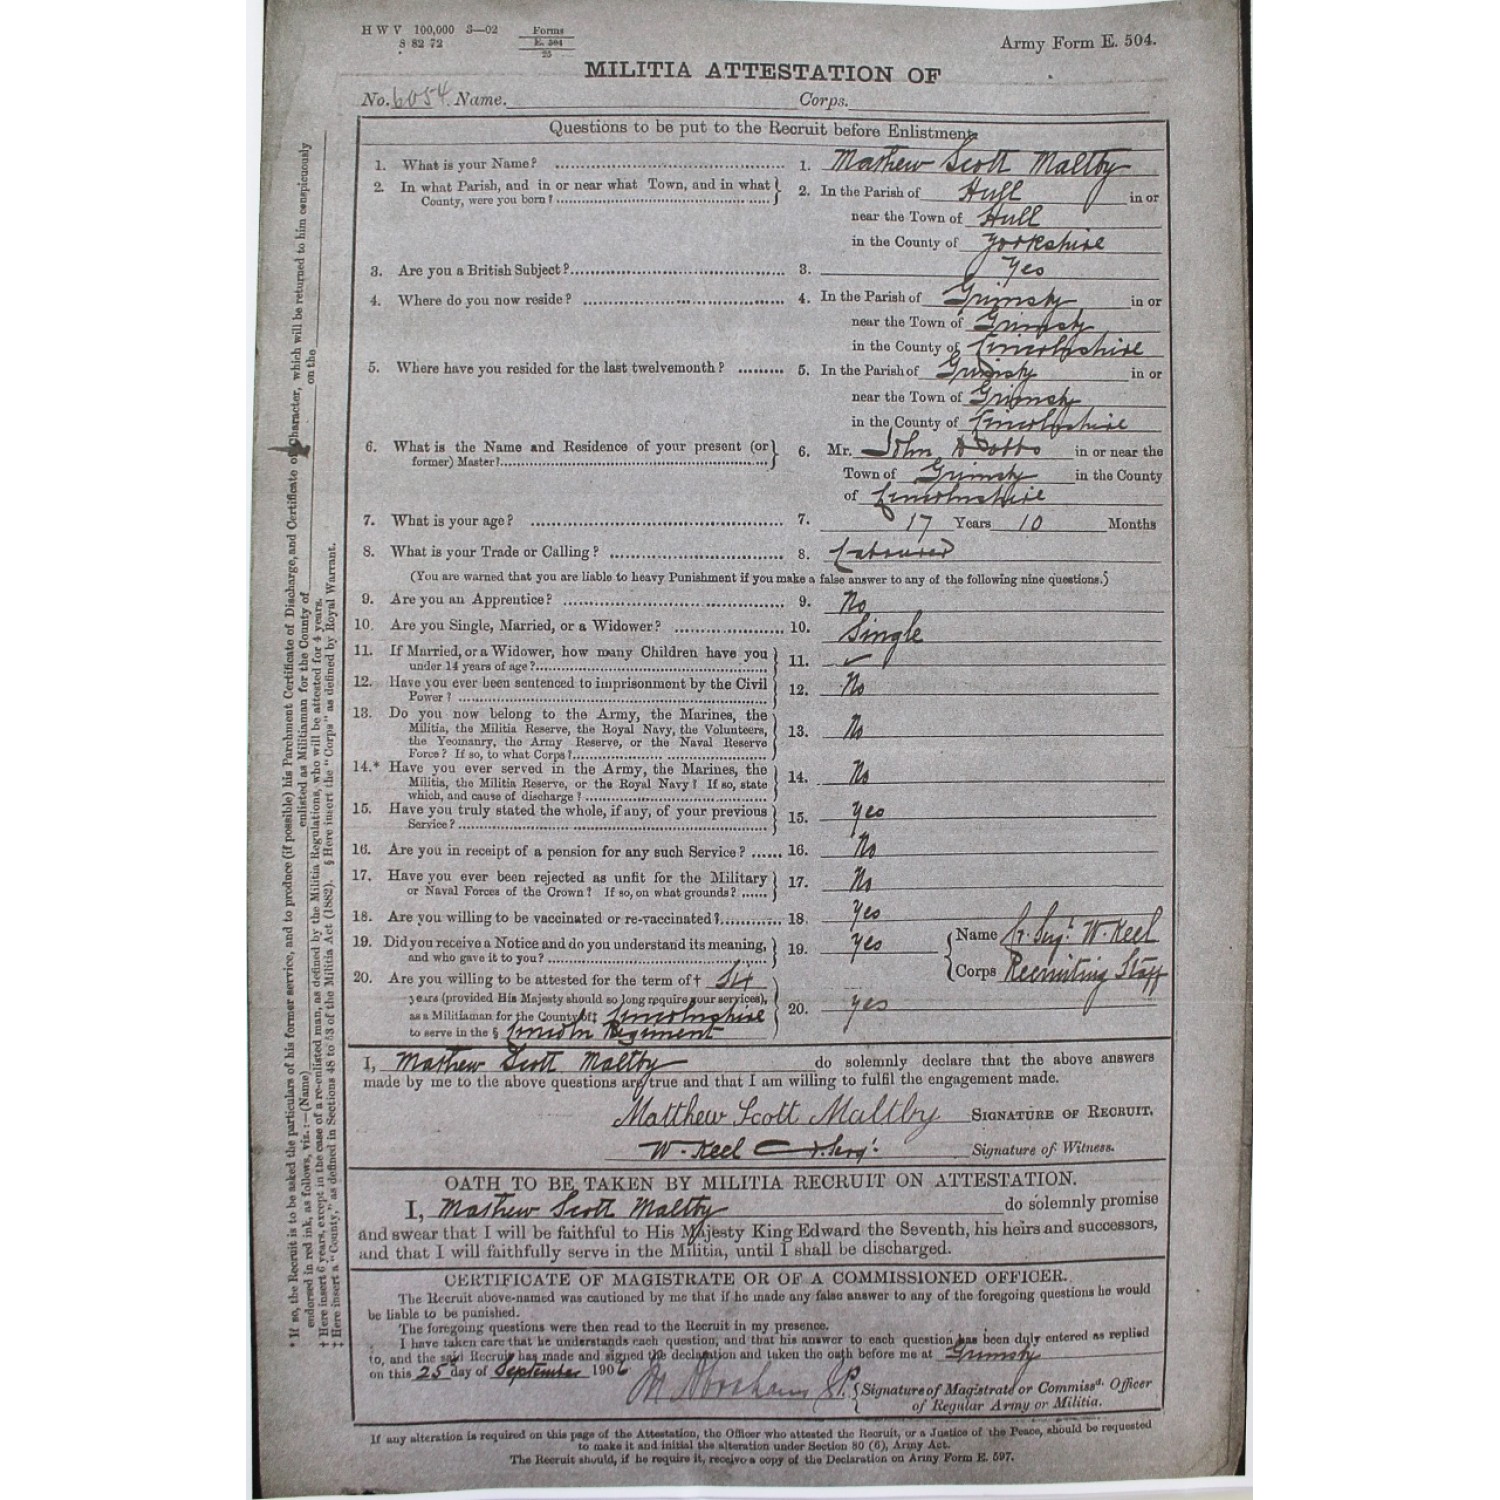 H W V 100,000 3—02
S 82 72
Forms
E. 504
25
Army Form E. 504.
MILITIA ATTESTATION OF
No. 6054 Name. Corps.
Questions to be put to the Recruit before Enlistment.
1. What is your Name? 1. Mathew Scott Maltby
2. In what Parish, and in or near what Town, and in what County, were you born? 2. In the Parish of Hull in or
near the Town of Hull
in the County of Yorkshire
3. Are you a British Subject? 3. Yes
4. Where do you now reside? 4. In the Parish of Grimsby in or
near the Town of Grimsby
in the County of Lincolnshire
5. Where have you resided for the last twelvemonth? 5. In the Parish of Grimsby in or
near the Town of Grimsby
in the County of Lincolnshire
6. What is the Name and Residence of your present (or former) Master? 6. Mr. John in or near the
Town of Grimsby in the County
of Lincolnshire
7. What is your age? 7. 17 Years 10 Months
8. What is your Trade or Calling? 8. Labourer
(You are warned that you are liable to heavy Punishment if you make a false answer to any of the following nine questions.)
9. Are you an Apprentice? 9. No
10. Are you Single, Married, or a Widower? 10. Single
11. If Married, or a Widower, how many Children have you
under 14 years of age? 11.
12. Have you ever been sentenced to imprisonment by the Civil
Power? 12. No
13. Do you now belong to the Army, the Marines, the
Militia, the Militia Reserve, the Royal Navy, the Volunteers,
the Yeomanry, the Army Reserve, or the Naval Reserve
Force? If so, to what Corps? 13. No
14.* Have you ever served in the Army, the Marines, the
Militia, the Militia Reserve, or the Royal Navy? If so, state
which, and cause of discharge? 14. No
15. Have you truly stated the whole, if any, of your previous
Service? 15. Yes
16. Are you in receipt of a pension for any such Service? 16. No
17. Have you ever been rejected as unfit for the Military
or Naval Forces of the Crown? If so, on what grounds? 17. No
18. Are you willing to be vaccinated or re-vaccinated? 18. Yes
19. Did you receive a Notice and do you understand its meaning,
and who gave it to you? 19. Yes Name Sergt. W. Keel
Corps Recruiting Staff
20. Are you willing to be attested for the term of † Six
years (provided His Majesty should so long require your services),
as a Militiaman for the County of ‡ Lincolnshire
to serve in the § Lincoln Regiment 20. yes
I, Mathew Scott Maltby do solemnly declare that the above answers
made by me to the above questions are true and that I am willing to fulfil the engagement made.
Matthew Scott Maltby SIGNATURE OF RECRUIT.
W. Keel Signature of Witness.
OATH TO BE TAKEN BY MILITIA RECRUIT ON ATTESTATION.
I, Mathew Scott Maltby do solemnly promise
and swear that I will be faithful to His Majesty King Edward the Seventh, his heirs and successors,
and that I will faithfully serve in the Militia, until I shall be discharged.
CERTIFICATE OF MAGISTRATE OR OF A COMMISSIONED OFFICER.
The Recruit above-named was cautioned by me that if he made any false answer to any of the foregoing questions he would
be liable to be punished.
The foregoing questions were then read to the Recruit in my presence.
I have taken care that he understands each question, and that his answer to each question has been duly entered as replied
to, and the said Recruit has made and signed the declaration and taken the oath before me at Grimsby
on this 25 day of September 190
M Abrahams J.P. Signature of Magistrate or Commissd. Officer
of Regular Army or Militia.
If any alteration is required on this page of the Attestation, the Officer who attested the Recruit, or a Justice of the Peace, should be requested
to make it and initial the alteration under Section 80 (6), Army Act.
The Recruit should, if he require it, receive a copy of the Declaration on Army Form E. 597.
* If so, the Recruit is to be asked the particulars of his former service, and to produce (if possible) his Parchment Certificate of Discharge, and Certificate of Character, which will be returned to him conspicuously
endorsed in red ink, as follows, viz.:—(Name) enlisted as Militiaman for the County of on the
† Here insert 6 years, except in the case of a re-enlisted man, as defined by the Militia Regulations, who will be attested for 4 years.
‡ Here insert a "County," as defined in Sections 48 to 53 of the Militia Act (1882). § Here insert the "Corps" as defined by Royal Warrant.